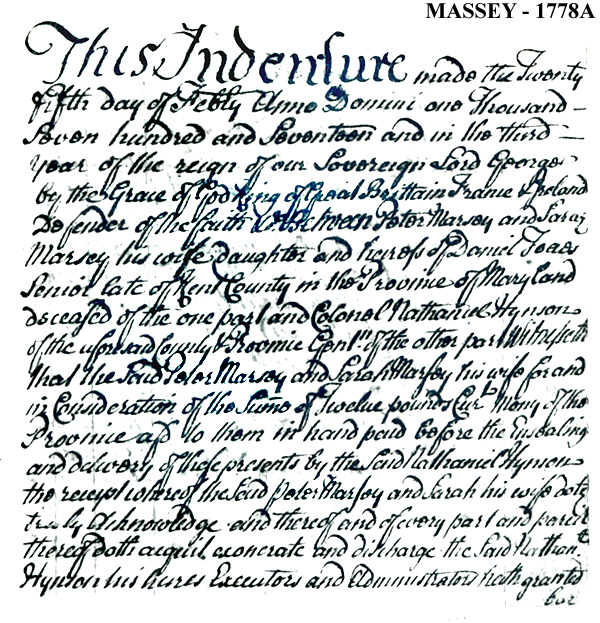 MASSEY - 1778A
This Indenture made the Twenty
fifth day of Febry Anno Domini one Thousand
Seven hundred and Seventeen and in the third
year of the reign of our Sovereign Lord George
by the Grace of God King of Great Brittain France & Ireland
Defender of the faith &c Between Peter Marsey and Sarah
Marsey his wife daughter and heiress of Daniel Toaes
Senior late of Kent County in the Province of Maryland
deceased of the one part and Colonel Nathaniel Hynson
of the aforesaid County & Province Gent.n of the other part Witnesseth
that the Said Peter Marsey and Sarah Marsey his wife for and
in Consideration of the Sume of Twelve pounds Curt Mony of the
Province afsd to them in hand paid before the Ensealing
and delivery of these presents by the Said Nathaniel Hynson
the receipt whereof the Said Peter Marsey and Sarah his wife doth
truly Acknowledge and thereof and of every part and parcel
thereof doth acquit exonerate and discharge the Said Nathan.l
Hynson his heires Executors and Administrators hath granted
bar